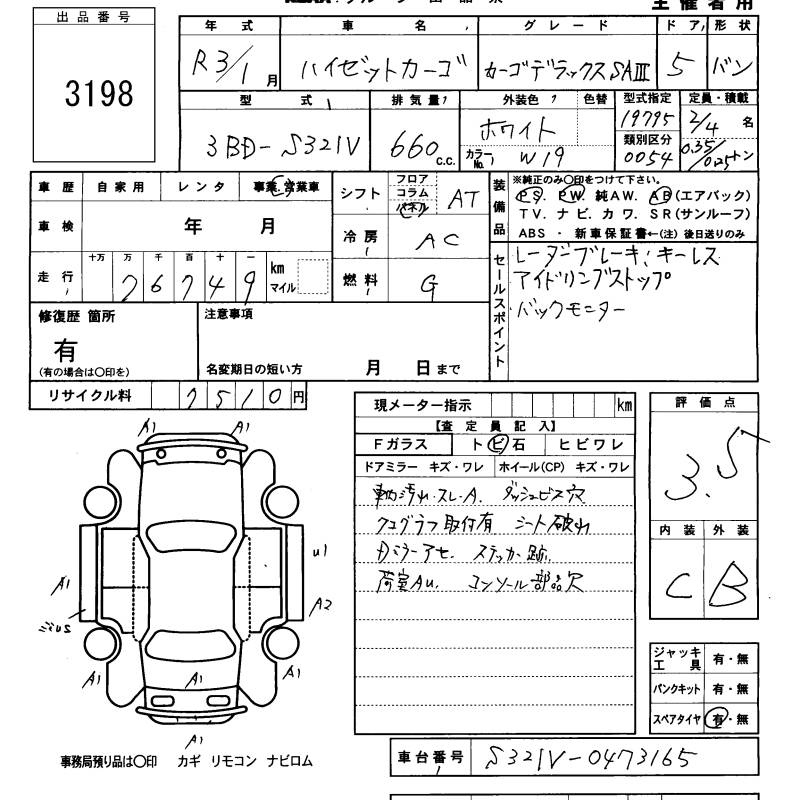 主催者用
出品番号
3198
年式 車名 グレード ドア 形状
R3/1月 ハイゼットカーゴ カーゴデラックスSAⅢ 5 バン
型式 排気量 外装色 色替 型式指定 定員・積載
3BD-S321V 660c.c. ホワイト 19795 2/4名
カラーNo. W19 類別区分 0054 0.35/0.25トン
車歴 自家用 レンタ 事業・営業車
シフト フロア コラム パネル AT
車検 年 月
冷房 AC
走行 十万 万 千 百 十 一
7 6 7 4 9 km マイル
燃料 G
装備品
※純正のみ○印をつけて下さい。
PS. PW. 純AW. AB(エアバック)
TV. ナビ. カワ. SR(サンルーフ)
ABS ・ 新車保証書←(注) 後日送りのみ
セールスポイント
レーダーブレーキ. キーレス
アイドリングストップ
バックモニター
修復歴 箇所
有
(有の場合は○印を)
注意事項
名変期日の短い方 月 日まで
リサイクル料 7510円
現メーター指示 km
【査定員記入】
Fガラス トビ石 ヒビワレ
ドアミラー キズ・ワレ ホイール(CP) キズ・ワレ
車内汚れ・スレ・A. ダッシュビス穴
取付有 シート破れ
Dミラーアセ. ステッカー跡.
荷室AU. コンソール部品欠
評価点
3.5
内装 外装
C B
ジャッキ工具 有・無
パンクキット 有・無
スペアタイヤ 有・無
A1 A1
U1
A1 A2
A1 A1 A1
A1
事務局預り品は○印 カギ リモコン ナビロム
車台番号 S321V-0473165